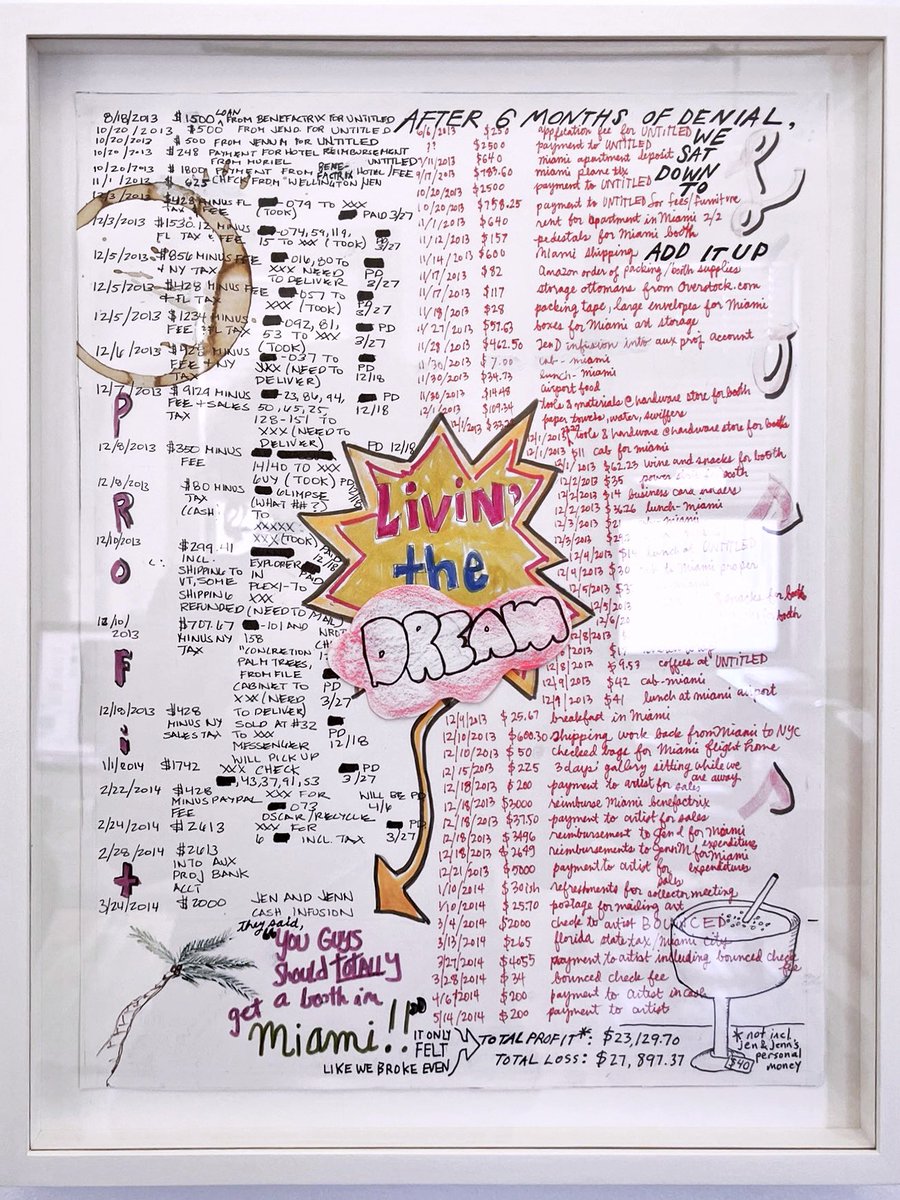 AFTER 6 MONTHS OF DENIAL,
WE
SAT
DOWN
TO
ADD IT UP
8/18/2013 $1500 LOAN FROM BENEFACTRIX FOR UNTITLED
10/20/2013 $500 FROM JEN D. FOR UNTITLED
10/20/2013 $500 FROM JENN M FOR UNTITLED
10/20/2013 $248 PAYMENT FOR HOTEL REIMBURSEMENT
FROM MURIEL UNTITLED
10/20/2013 $1800 PAYMENT FROM BENEFACTRIX HOTEL/FEE
11/1/2013 $625 CHECK FROM "WELLINGTON/JEN
12/3/2013 $428 MINUS FL -079 TO XXX
TAX + FEE (TOOK) PAID 3/27
12/3/2013 $1530.12 MINUS -074, 59, 119,
FL TAX + FEE 15 TO XX (TOOK) PD 3/27
12/5/2013 $856 MINUS FEE 016, 80 TO PD
+ NY TAX XXX NEED TO DELIVER 3/27
12/5/2013 $428 MINUS FEE -057 TO PD
+ FL TAX XXX (TOOK) 3/27
12/5/2013 $1234 MINUS -092, 81, PD
FEE + FL TAX 53 TO XXX (TOOK) 3/27
12/6/2013 MINUS -037 TO PD
FEE + NY TAX XXX (NEED TO DELIVER) 12/18
12/7/2013 $9124 MINUS -23, 86, 94, PD
FEE + SALES TAX 50, 45, 25, 128-151 TO XXX (NEED TO DELIVER) 12/18
12/8/2013 $350 MINUS PD 12/18
FEE 14/40 TO XXX GUY (TOOK)
12/8/2013 $80 MINUS GLIMPSE
TAX (CASH (WHAT ##?) TO XXXXX (TOOK)
12/10/2013 $299.41 INCL. EXPLORER IN PLEXI - TO XXX
SHIPPING TO VT, SOME SHIPPING REFUNDED (NEED TO MAIL)
12/10/2013 $707.67 -101 AND 158
MINUS NY TAX "CONCRETION PALM TREES, FROM FILE CABINET TO XX (NEED TO DELIVER) PD 3/27
12/18/2013 $428 SOLD AT #32 PD
MINUS NY SALES TAX TO XXX MESSENGER WILL PICK UP 12/18
1/1/2014 $1742 XXX CHECK PD
43, 37, 91, 53 3/27
2/22/2014 $428 XXX FOR WILL BE PD
MINUS PAYPAL FEE 073 OSCAR/RECYCLE 4/6
2/24/2014 $2613 XXX FOR PD
6 INCL. TAX 3/27
2/28/2014 $2613
INTO AUX PROJ BANK ACCT
3/24/2014 $2000 JEN AND JENN
CASH INFUSION
PRoFit
6/6/2013 $250 application fee for UNTITLED
?? $2500 payment to UNTITLED
9/11/2013 $640 miami apartment deposit
9/17/2013 $783.60 miami plane tix
10/20/2013 $2500 payment to UNTITLED
10/20/2013 $758.25 payment to UNTITLED for fees/furniture
11/1/2013 $640 rent for apartment in Miami 2/2
11/12/2013 $157 pedestals for Miami booth
11/14/2013 $600 Miami shipping
11/17/2013 $82 Amazon order of packing/both supplies
11/17/2013 $117 storage ottomans from Overstock.com
11/18/2013 $28 packing tape, large envelopes for Miami
11/27/2013 $57.63 boxes for Miami art storage
11/29/2013 $462.50 Jen D infusion into aux proj account
11/30/2013 $7.00 cab - miami
11/30/2013 $34.73 lunch - miami
11/30/2013 $14.48 airport food
12/1/2013 $109.34 tools & materials @ hardware store for booth
12/1/2013 paper towels, water, swiffers
12/1/2013 tools & hardware @ hardware store for booth
12/1/2013 $11 cab for miami
12/1/2013 $62.23 wine and snacks for booth
12/2/2013 $35 booth
12/2/2013 $14 business card
12/2/2013 $36.26 lunch - Miami
12/3/2013
12/4/2013 UNTITLED
12/4/2013 $30 Miami proper
12/5/2013 snacks for booth
12/8/2013 $9.53 coffees at UNTITLED
12/9/2013 $42 cab - miami
12/9/2013 $41 lunch at miami airport
12/9/2013 $25.67 breakfast in Miami
12/10/2013 $600.30 shipping work back from Miami to NYC
12/10/2013 $50 checked bags for Miami flight home
12/15/2013 $225 3 days' gallery sitting while we are away
12/18/2013 $200 payment to artist for sales
12/18/2013 $3000 reimburse Miami benefactrix
12/18/2013 $3750 payment to artist for sales
12/18/2013 $3496 reimbursement to Jen d for Miami expenditures
12/18/2013 $2649 reimbursements to Jenn M for Miami expenditures
12/21/2013 $5000 payment to artist for sales
1/10/2014 $30ish refreshments for collector meeting
1/10/2014 $25.70 postage for mailing art
3/4/2014 $2000 check to artist BOUNCED
3/13/2014 $265 florida state tax/miami city
3/27/2014 $4055 payment to artist including bounced check fee
3/28/2014 $34 bounced check fee
4/6/2014 $200 payment to artist in cash
5/14/2014 $200 payment to artist
LOSS
LiViN'
the
DREAM
they said,
"YOU GUYS
Should TOTALLY
get a booth in
Miami!!"
IT ONLY
FELT
LIKE WE BROKE EVEN
TOTAL PROFIT*: $23,129.70
TOTAL LOSS: $27,897.37
* not incl.
Jen & Jenn's
personal
money
$40